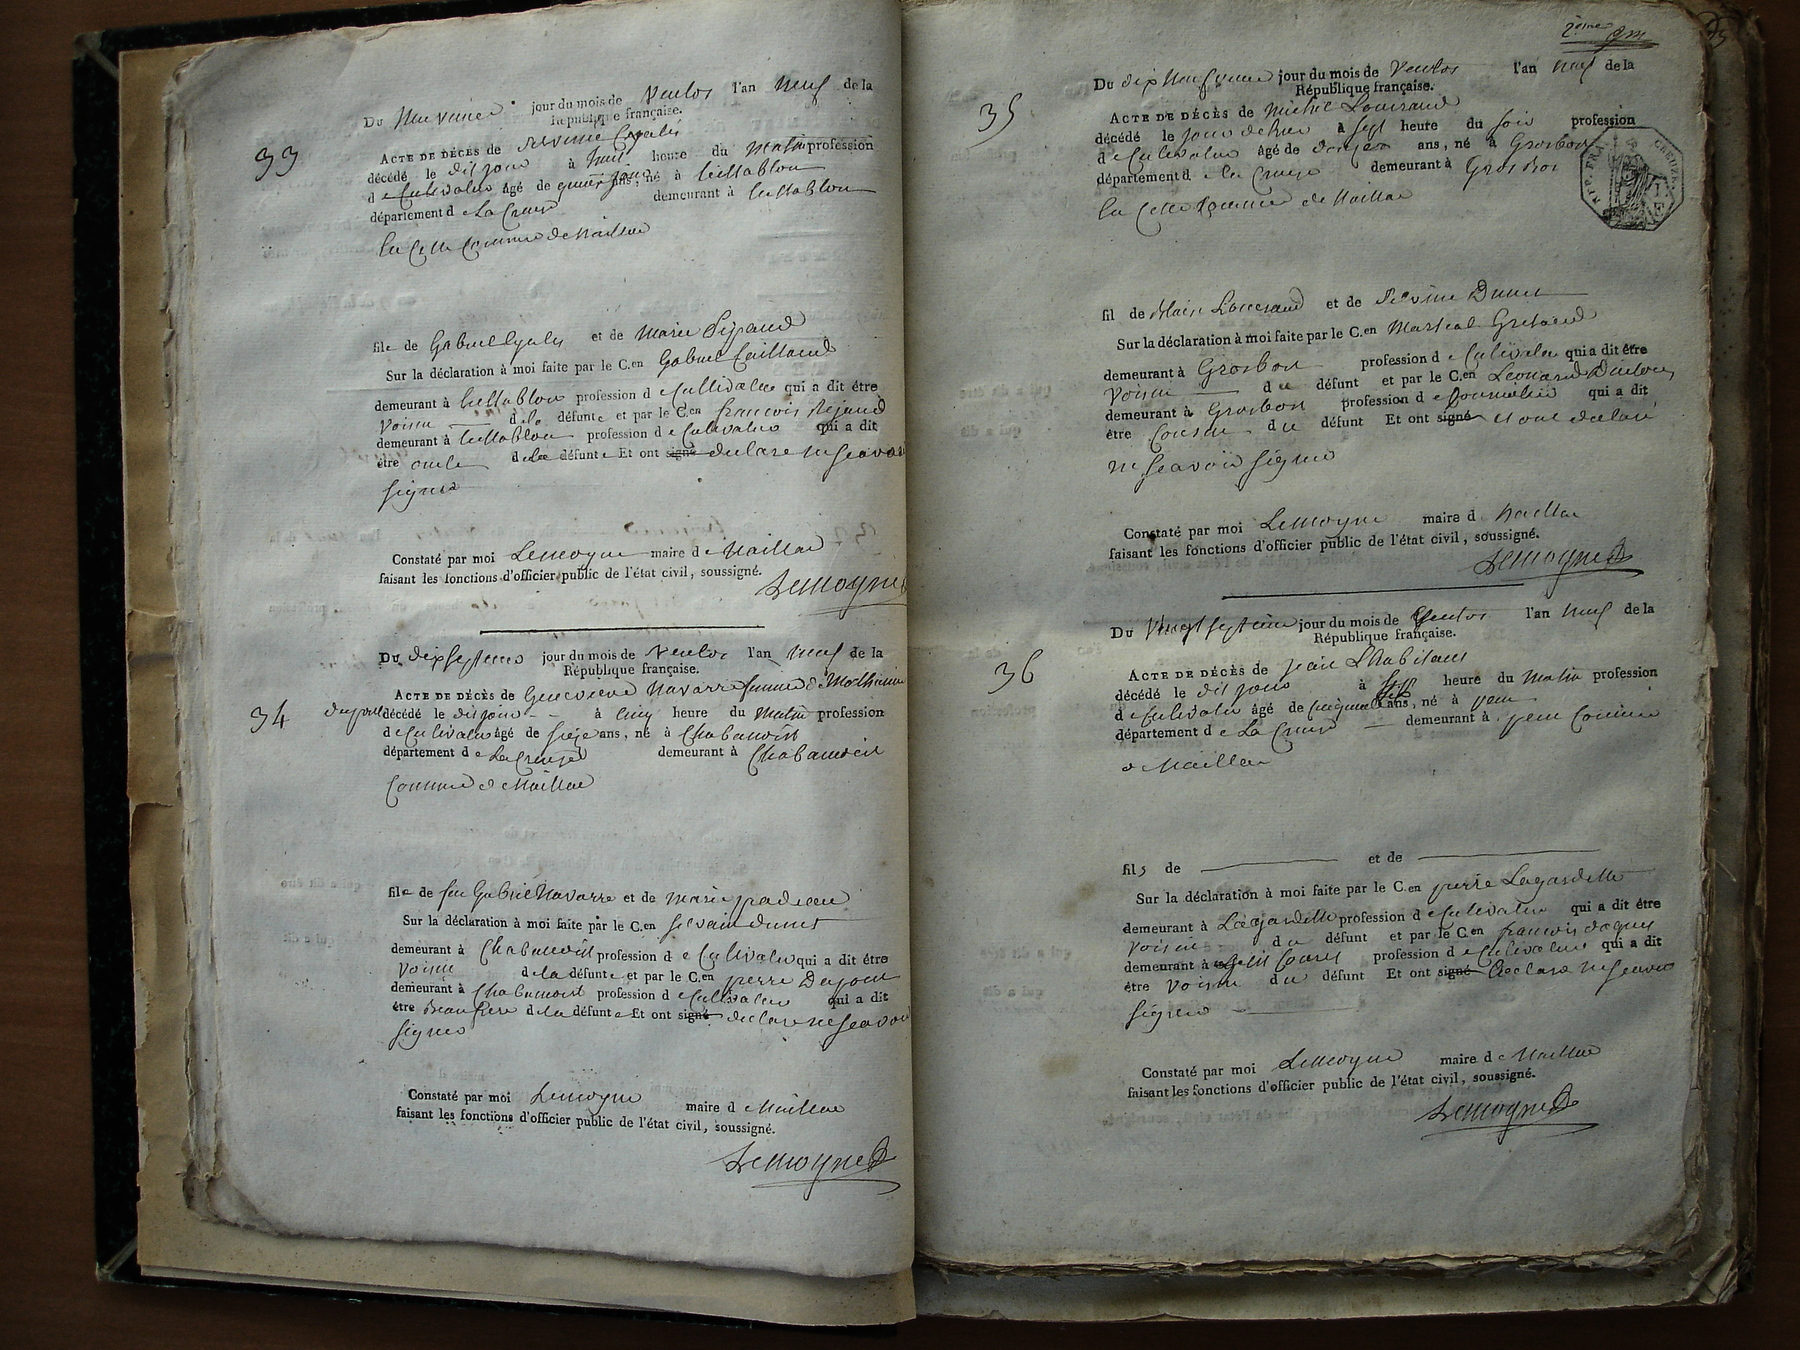 33
Du neuvieme jour du mois de Ventos l'an neuf de la
République française.
ACTE DE DÉCÈS de
décédé le dit jour à huit heure du matin profession
de Cultivateur âgé de ans, né à
département de La Creuse demeurant à
la Celle Commune de Naillat
file de Gabriel et de Marie
Sur la déclaration à moi faite par le C.en Gabriel
demeurant à profession de Cullivateur qui a dit être
Voisin de la défunte et par le C.en francois
demeurant à profession de Cultivateur qui a dit
être oncle de la défunte Et ont signé declare ne scavoir
signer
Constaté par moi Lemoyne maire de Naillat
faisant les fonctions d'officier public de l'état civil, soussigné.
Lemoyne
34
Du dix Septieme jour du mois de Ventos l'an neuf de la
République française.
ACTE DE DÉCÈS de Genevieve Navarre femme de Mathurin
décédé le dit jour à cinq heure du Matin profession
de Cultivateur âgé de ans, né à Chabannoit
département de La Creuse demeurant à Chabannoit
Commune de Naillat
file de feu Gabriel Navarre et de marie
Sur la déclaration à moi faite par le C.en Silvain dunet
demeurant à Chabannoit profession de Cultivateur qui a dit être
Voisin de la défunte et par le C.en pierre
demeurant à Chabannoit profession de Cultivateur qui a dit
être Beau frere de la défunte Et ont signé declare ne scavoir
signer
Constaté par moi Lemoyne maire de Naillat
faisant les fonctions d'officier public de l'état civil, soussigné.
Lemoyne
2ème
35
Du dix Neufvieme jour du mois de Ventos l'an neuf de la
République française.
ACTE DE DÉCÈS de Michel
décédé le jour de hier à sept heure du soir profession
de Cultivateur âgé de ans, né à Grosbon
département de la Creuse demeurant à Grosbon
la Celle Commune de Naillat
RÉP. FRA. CREUZE.
fil de et de Silvine Dunet
Sur la déclaration à moi faite par le C.en Martial
demeurant à Grosbon profession de Cultivateur qui a dit être
Voisin du défunt et par le C.en Leonard
demeurant à Grosbon profession de Journalier qui a dit
être Cousin du défunt Et ont signé et ont declaré
ne scavoir signer
Constaté par moi Lemoyne maire de Naillat
faisant les fonctions d'officier public de l'état civil, soussigné.
Lemoyne
36
Du Vingt septieme jour du mois de Ventos l'an neuf de la
République française.
ACTE DE DÉCÈS de jean L'habitant
décédé le dit jour à heure du Matin profession
de Cultivateur âgé de ans, né à
département de La Creuse demeurant à Commune
de Naillat
fils de et de
Sur la déclaration à moi faite par le C.en pierre Lagardette
demeurant à Lagardette profession de Cultivateur qui a dit être
Voisin du défunt et par le C.en francois
demeurant à profession de Cultivateur qui a dit
être Voisin du défunt Et ont signé declare ne scavoir
signer
Constaté par moi Lemoyne maire de Naillat
faisant les fonctions d'officier public de l'état civil, soussigné.
Lemoyne